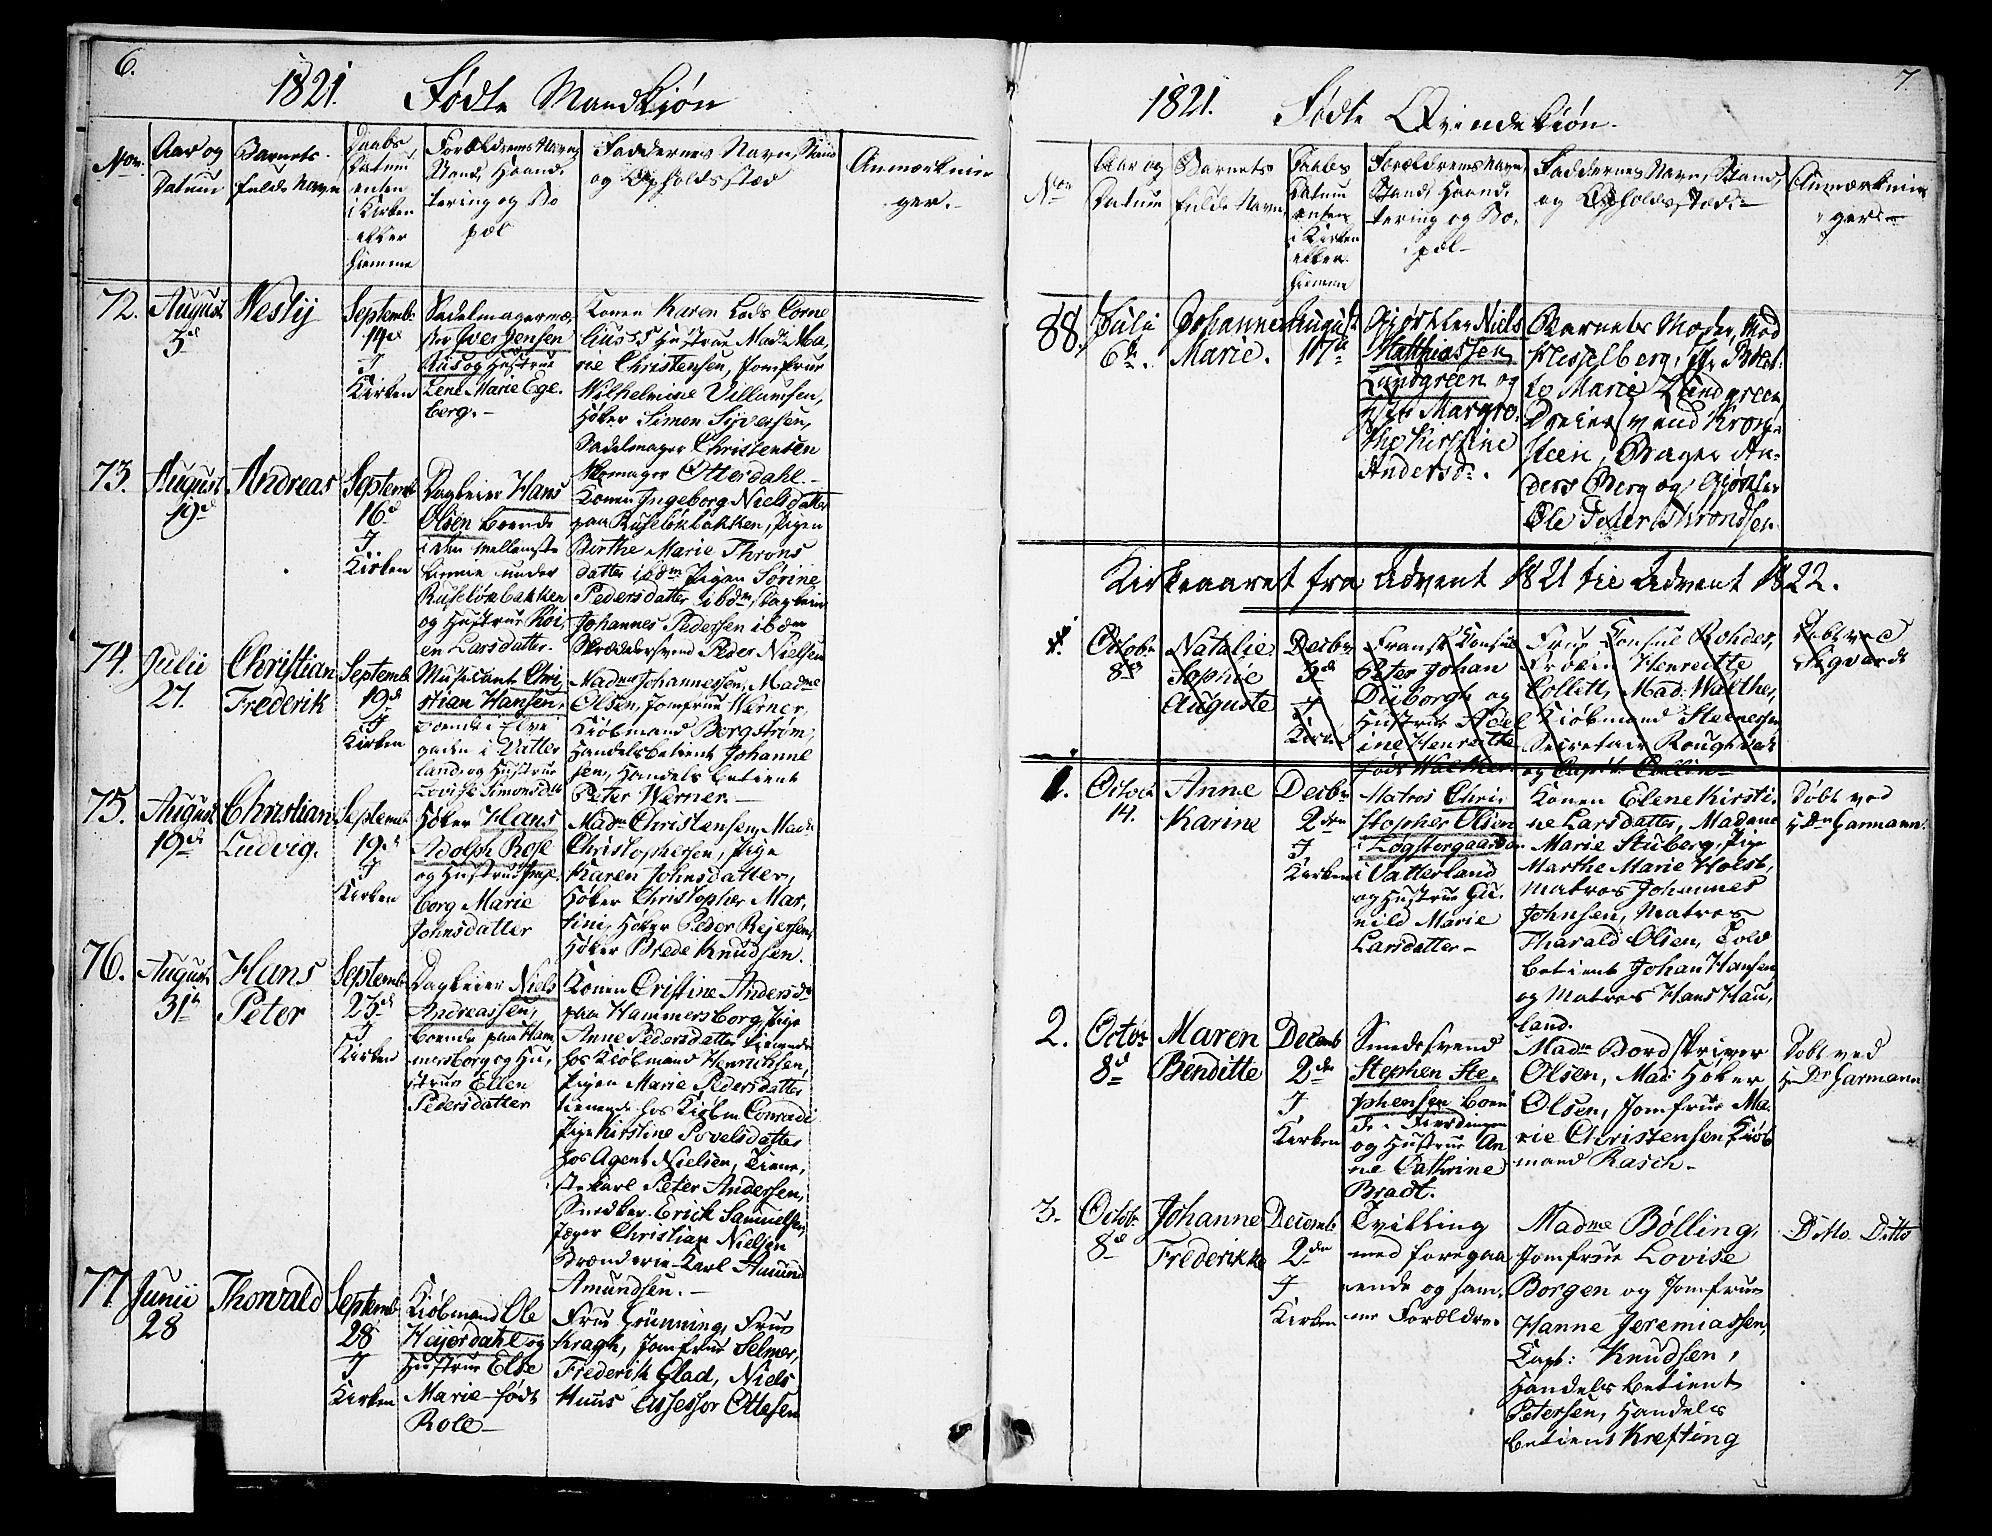 6.
1821. Fødte Mandkjøn
No.
Aar og
Datum
Barnets
fulde Navn
Daabs
Datum
enten
i Kirken
eller
hiemme
Forældrenes Navn,
Stand, Haand-
tering og Bo
pæl
Faddernes Navn, Stand
og Opholdssted
Anmærknin
ger.-
72.
August
5d
Westy
Septemb.
19d
I
Kirken
Sadelmagermæ,
ster Iver Jensen
Aas og Hustrue
Lene Marie Ege-
berg.-
Konen Karen Lods Corne
lius's Hustrue Made Ma,
rie Christensen, Jomfrue
Wilhelmine Villumsen,
Høker Simon Syversen,
Sadelmager Christensen
Otterdahl.-
73.
August
19d
Andreas
Septemb
16d
I
Kirken
Dagleier Hans
Olsen boende
i den mellemste
under
Ruseløkbakken
og Hustrue Kri,
en Larsdatter.
Konen Ingeborg Nielsdatter
paa Ruseløkbakken, Pigen
Birthe Marie Throns
datter ibdm Pigen Sørine
Pedersdatter ibdm, Dagleier
Johannes Pedersen ibdm
Skræddersvend Peder Nielsen
74.
Julii
27.
Christian
Frederik
Septemb
19d
I
Kirken
Musicant Chri
stian Hansen,
boende i Elve
gaden i Vatter
land, og Hustrue
Lovise Simonsdatt
Madme Johannessen, Madme
Olsen, Jomfrue Werner,
Kiøbmand Bergstrøm,
Handelsbetient Johanne
sen, Handels betient
Peter Werner.-
75.
August
19d
Christian
Ludvig.
Septemb
19d
I
Kirken
Høker Hans
Adolph Rose
og Hustrue Inge,
borg Marie
Johnsdatter
Madm Christensen, Mad.
Christophersen, Pige
Karen Johnsdatter,
Høker Christopher Mar,
tini, Høker Peder Reiersen,
Høker Brede Knudsen.
76.
August
31te
Hans
Peter
Septemb
23d
I
Kirken
Dagleier Niels
Andreassen,
boende paa Ham,
mersborg og Hu,
strue Ellen
Pedersdatter
Konen Cristine Andersdr
paa Hammersborg, Pige
Anne Pedersdatter tienende
hos Kiøbmand Henrichsen,
Pigen Marie Pedersdatter
tienende hos Kiøbm. Conradi
Pige Kirstine Povelsdatter
hos Agent Nielsen, Tiene,
stekarl Peter Andersen,
Snedker Erick Samuelsen,
Jæger Christian Nielsen
Brænderie-Karl Amund
Amundsen.-
77
Junii
28
Thorvald
Septemb
28
I
Kirken
Kiøbmand Ole
Heyerdahl og
Hustrue Else
Marie født
Roll-
Frue Grünning, Frue
Kragh, Jomfrue Selmer,
Frederik Glad, Niels
Huus Assessor Ottesen
7.
1821. Fødte Qvindekiøn.
No
Aar og
Datum
Barnets
fulde Navn
Daabs
Datum
enten
i Kirken
eller
hiemme
Forældrenes Navn
Stand, Haand
tering og Bo,
pæl-
Faddernes Navn, Stand,
og Opholdssted:-
Anmærknin
ger:-
88.
Julii
6te.
Johanne
Marie.
August
17de
Gjørtler Niels
Matthiassen
Lundgreen og
Hstr Margre,
the Kirstine
Andersdr.
Barnets Moder, Mad
Hesselberg, Jfr Birth
te Marie Lundgreen
Dreiersvend Kron,
steen, Bager An,
ders Berg og Gjørtler
Ole Peter Throndsen
Kirkeaaret fra Advent 1821 til Advent 1822.
1.
Octobr
8de
Natalie
Sophie
Auguste
Decbr
3d
I
Kirk.
Fransk Consul
Peter Johan
Düborgh og
Hustrue Adel
ine Henriette
født Walther
Frue Consul Rohdes,
Frøken Henriette
Collett, Mad: Walther,
Kiøbmand Steenersen
Secretair Rough
og Capit. Collin-
Døbt ved
Sigvardt
1.
Octobr
14.
Anne
Karine
Decbr
2den
I
Kirken
Matros Chri,
stopher Olsen
i Zøgstorgaarden
i Vatterland
og Hustrue Gu,
nild Marie
Larsdatter-
Konen Elene Kirsti,
ne Larsdatter, Madame
Marie Stuberg, Pige
Marthe Marie Holst,
Matros Johannes
Johnsen, Matros
Tharald Olsen, Told
betient Johan Hansen
og Matros Hans Hau,
land.
Døbt ved
Hr Garmann.
2.
Octobr
8d
Maren
Benditte
Decemb
2den
I
Kirken
Smedsvend
Stephen Ste,
phensen boen
de i Fierdingen
og Hustrue An
ne Cathrine
Bradt.
Madm Bordskriver
Olsen, Mad: Høker
Olsen, Jomfrue Ma,
rie Christensen Kiøb
mand Rasch-
Døbt ved
Hr Garmann
3.
Octobr
8d
Johanne
Frederikke
Decemb
2den
I
Kirken
Tvilling
med foregaa
ende og sam,
me Forældre.
Madme Bølling,
Jomfrue Lovise
Borgen og Jomfrue
Hanne Jeremiassen,
Capt: Knudsen,
Handelsbetient
Petersen, Handels
betient Krefting
Ditto. Ditto